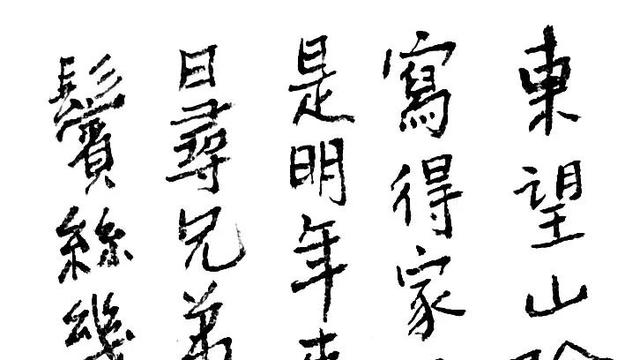 東望山
寫得家
是明年
日尋兄弟
鬢絲幾